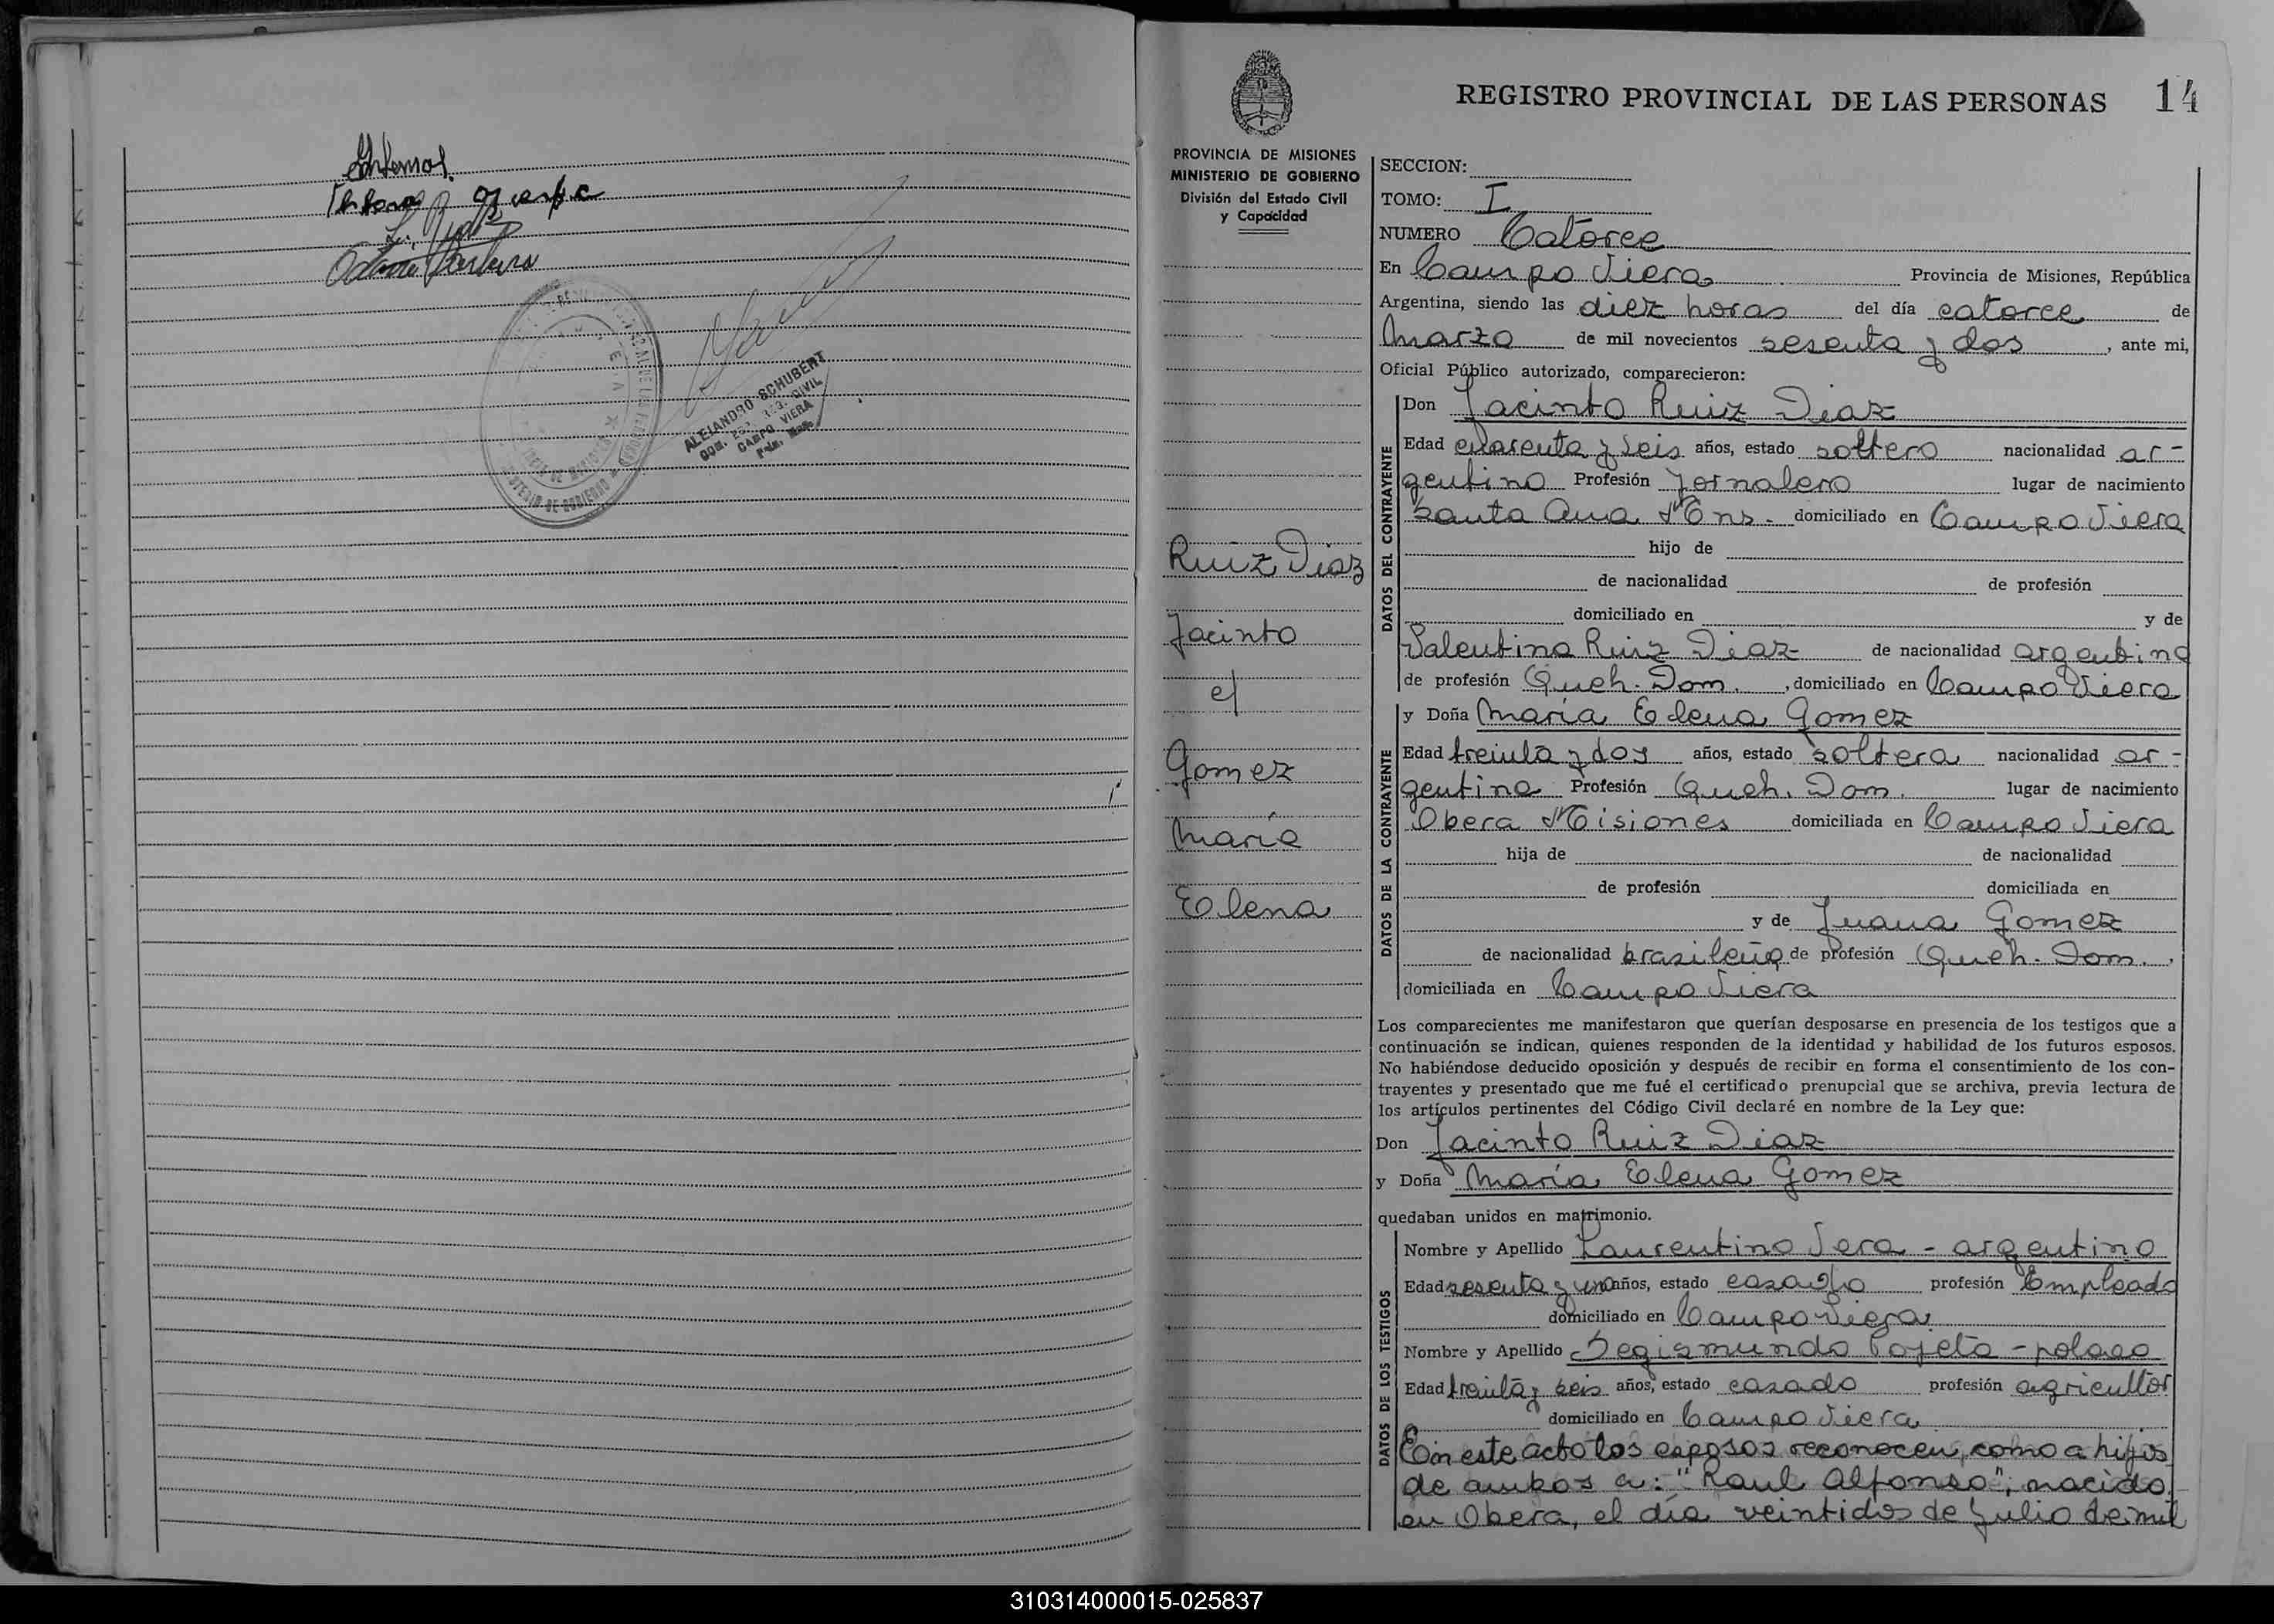 ALEJANDRO SCHUBERT
CAMPO VIERA
REGISTRO PROVINCIAL DE LAS PERSONAS 14
PROVINCIA DE MISIONES
MINISTERIO DE GOBIERNO
División del Estado Civil
y Capacidad
Ruiz Diaz
Jacinto
c/
Gomez
Maria
Elena
SECCION:
TOMO: I
NUMERO Catorce
En Campo Viera Provincia de Misiones, República
Argentina, siendo las diez horas del día catorce de
Marzo de mil novecientos sesenta y dos, ante mi,
Oficial Público autorizado, comparecieron:
DATOS DEL CONTRAYENTE
Don Jacinto Ruiz Diaz
Edad cuarenta y seis años, estado soltero nacionalidad ar-
gentino Profesión Jornalero lugar de nacimiento
Santa Ana Mns. domiciliado en Campo Viera
hijo de
de nacionalidad de profesión
domiciliado en y de
Valentina Ruiz Diaz de nacionalidad argentina
de profesión Queh. Dom. , domiciliado en Campo Viera
DATOS DE LA CONTRAYENTE
y Doña Maria Elena Gomez
Edad treinta y dos años, estado soltera nacionalidad ar-
gentina Profesión Queh. Dom. lugar de nacimiento
Obera Misiones domiciliada en Campo Viera
hija de de nacionalidad
de profesión domiciliada en
y de Juana Gomez
de nacionalidad brasileña de profesión Queh. Dom. ,
domiciliada en Campo Viera
Los comparecientes me manifestaron que querían desposarse en presencia de los testigos que a
continuación se indican, quienes responden de la identidad y habilidad de los futuros esposos.
No habiéndose deducido oposición y después de recibir en forma el consentimiento de los con-
trayentes y presentado que me fué el certificado prenupcial que se archiva, previa lectura de
los artículos pertinentes del Código Civil declaré en nombre de la Ley que:
Don Jacinto Ruiz Diaz
y Doña Maria Elena Gomez
quedaban unidos en matrimonio.
DATOS DE LOS TESTIGOS
Nombre y Apellido Laurentino Vera - argentino
Edad sesenta y un años, estado casado profesión Empleado
domiciliado en Campo Viera
Nombre y Apellido Segismundo - polaco
Edad treinta y seis años, estado casado profesión agricultor
domiciliado en Campo Viera
En este acto los esposos reconocen, como a hijos
de ambos a: "Raul Alfonso", nacido
en Obera, el día veintidos de Julio de mil
310314000015-025837